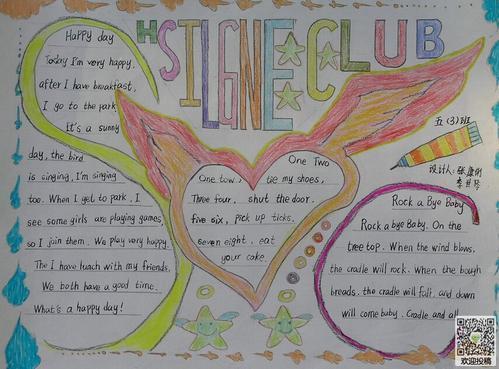 HSILGNE CLUB
五(3)班
设计人:
Happy day
Today I'm very happy.
after I have breakfast,
I go to the park
It's a sunny
day, the bird
is singing, I'm singing
too. When I get to park, I
see some girls are playing games,
so I join them. We play very happy.
The I have lunch with my friends,
We both have a good time.
What's a happy day!
One Two
One tow, tie my shoes,
Three four, shut the door.
five six, pick up ticks.
seven eight, eat
your cake.
Rock a Bye Baby
Rock a bye Baby. On the
tree top. When the wind blows,
the cradle will rock. When the bough
breads, the cradle will fall, and down
will come baby. Cradle and all
欢迎投稿